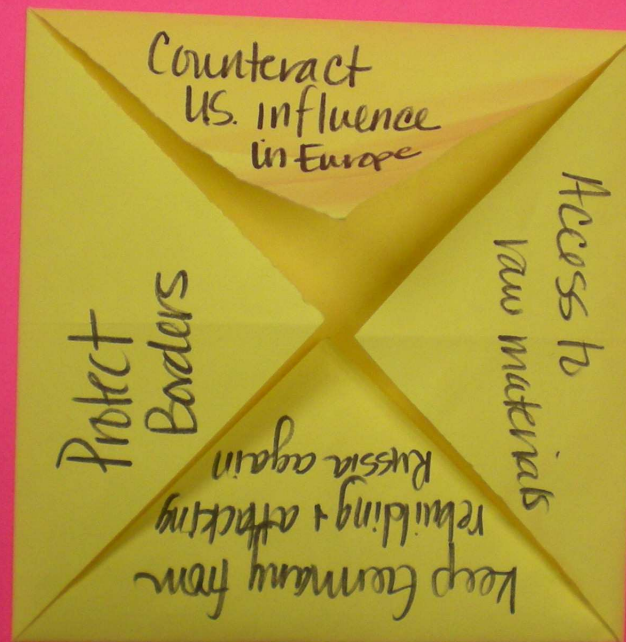 Counteract
U.S. influence
in Europe
Access to
raw materials
keep Germany from
rebuilding + attacking
Russia again
Protect
Borders